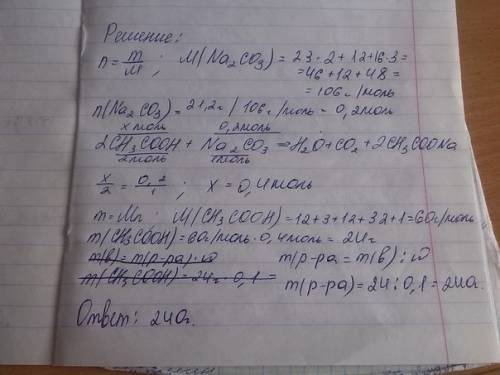 Решение:
n = m/M ; M(Na₂CO₃) = 23·2+12+16·3=
=46+12+48=
=106г/моль
n(Na₂CO₃)=21,2г/106г/моль=0,2моль
x моль 0,2моль
2CH₃COOH + Na₂CO₃ = H₂O+CO₂+2CH₃COONa
2моль 1моль
x/2 = 0,2/1 ; x = 0,4моль
m=Mn; M(CH₃COOH)=12+3+12+32+1=60г/моль
m(CH₃COOH)=60г/моль·0,4моль=24г
m(в)=m(р-ра)·ω m(р-ра)=m(в):ω
m(CH₃COOH)=24г·0,1= m(р-ра)=24:0,1=240г.
Ответ: 240г.